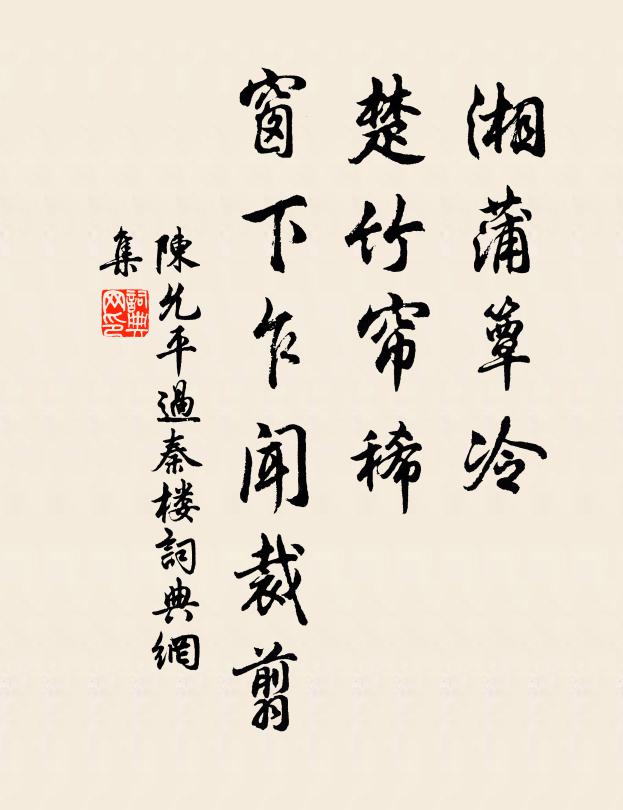 湘蒲簟冷
楚竹帘稀
窗下乍闻裁剪
陳允平過秦楼詞典網
集
詞典网印